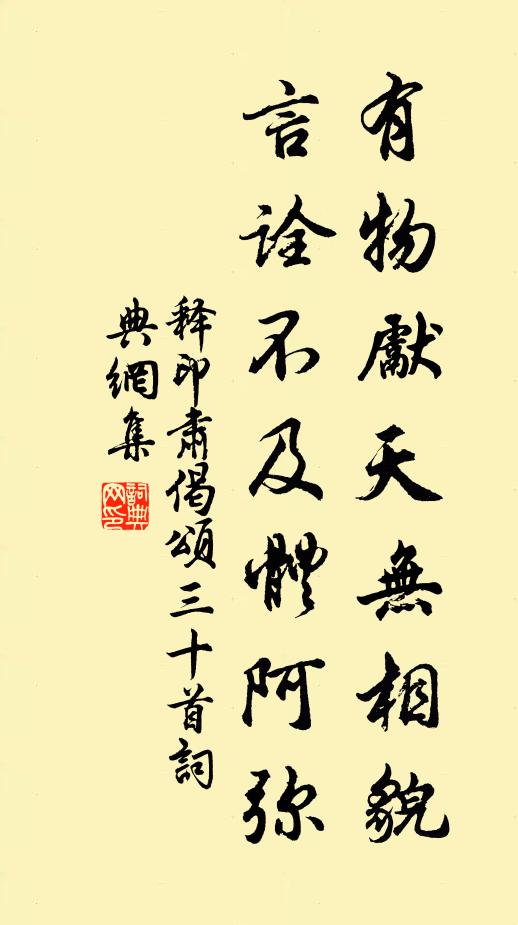 有物獻天無相貌
言詮不及體阿弥
释印肅偈頌三十首詞
典網集
詞典
网印